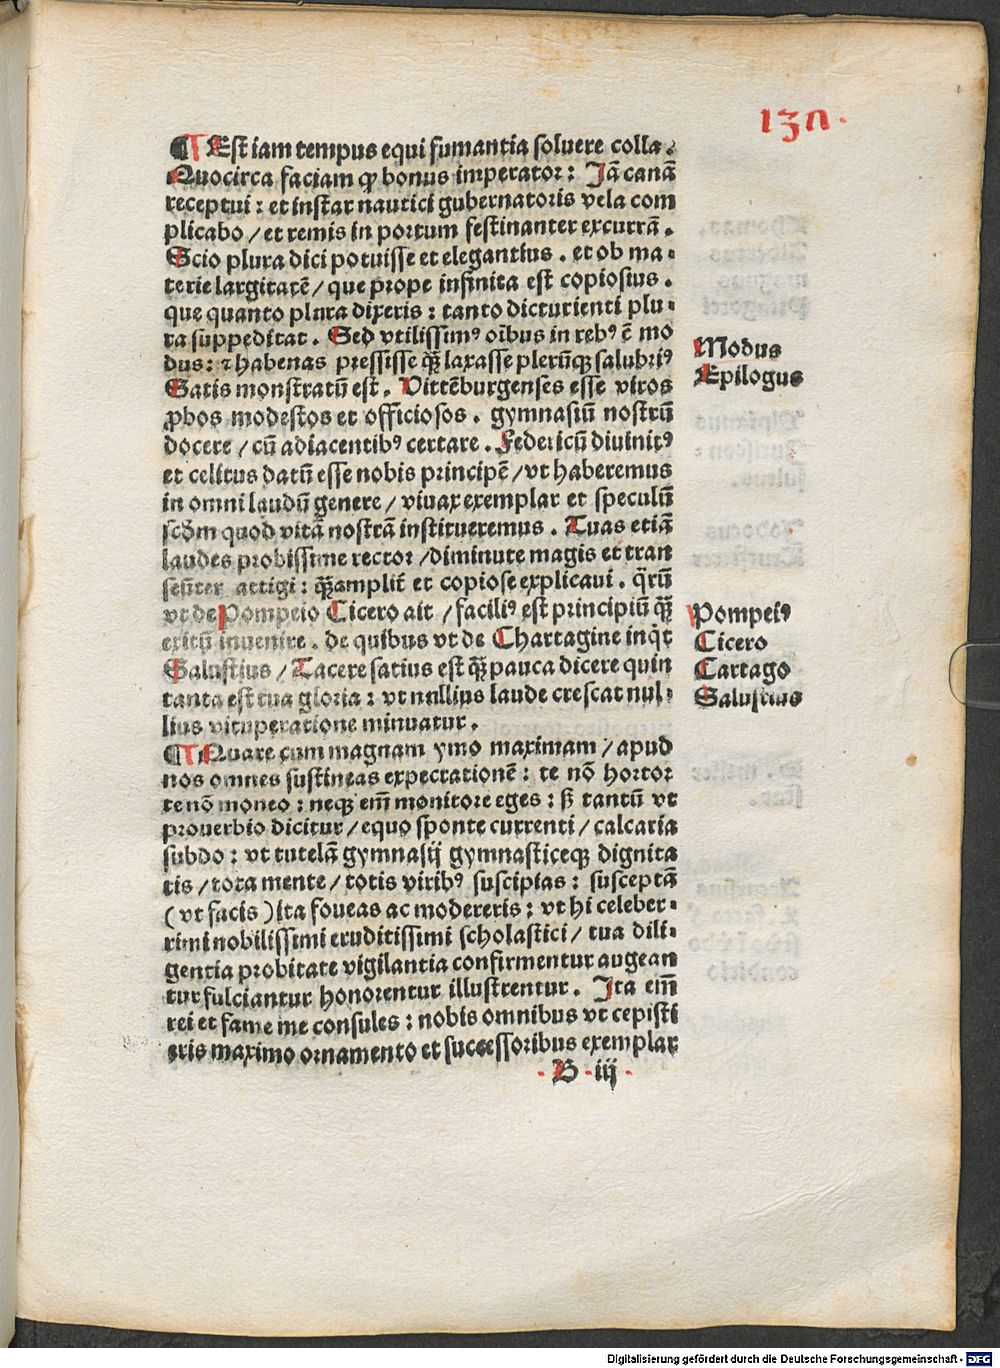 137.
¶ Est iam tempus equi fumantia soluere colla.
Quocirca faciam ꝙ bonus imperator: Jā canā
receptui: et instar nautici gubernatoris vela com
plicabo / et remis in portum festinanter excurrā.
Scio plura dici potuisse et elegantius. et ob ma⸗
terie largitatē / que prope infinita est copiosius.
que quanto plura dixeris: tanto dicturienti plu⸗
ra suppeditat. Sed vtilissimꝰ oībus in rebꝰ ē mo
dus: ⁊ habenas pressisse ꝙ̄ laxasse plerūqꝫ salubriꝰ
Satis monstratū est. Vittēburgenses esse viros
ꝓbos modestos et officiosos. gymnasiū nostrū
docere / cū adiacentibꝰ certare. Federicū diuinitꝰ
et celitus datū esse nobis principē / vt haberemus
in omni laudū genere / viuax exemplar et speculū
scd̄m quod vitā nostrā institueremus. Tuas etiā
laudes probissime rector / diminute magis et tran
seūter attigi: ꝙ̄ amplit̄ et copiose explicaui. qr̄ū
vt de Pompeio Cicero ait / faciliꝰ est principiū ꝙ̄
exitū inuenire. de quibus vt de Chartagine inqt̄
Salustius / Tacere satius est ꝙ̄ pauca dicere quin
tanta est tua gloria: vt nullius laude crescat nul⸗
lius vituperatione minuatur.
¶ Quare cum magnam ymo maximam / apud
nos omnes sustineas expectationē: te nō hortor
te nō moneo: neqꝫ em̄ monitore eges: sꝫ tantū vt
prouerbio dicitur / equo sponte currenti / calcaria
subdo: vt tutelā gymnasij gymnasticeqꝫ dignita
tis / tota mente / totis viribꝰ suscipias: susceptā
(vt facis) ita foueas ac modereris: vt hi celeber⸗
rimi nobilissimi eruditissimi scholastici / tua dili⸗
gentia probitate vigilantia confirmentur augean
tur fulciantur honorentur illustrentur. Jta em̄
rei et fame me consules: nobis omnibus vt cepisti
eris maximo ornamento et successoribus exemplar
B iij
Modus
Epilogus
Pompeiꝰ
Cicero
Cartago
Salustius
Digitalisierung gefördert durch die Deutsche Forschungsgemeinschaft - DFG